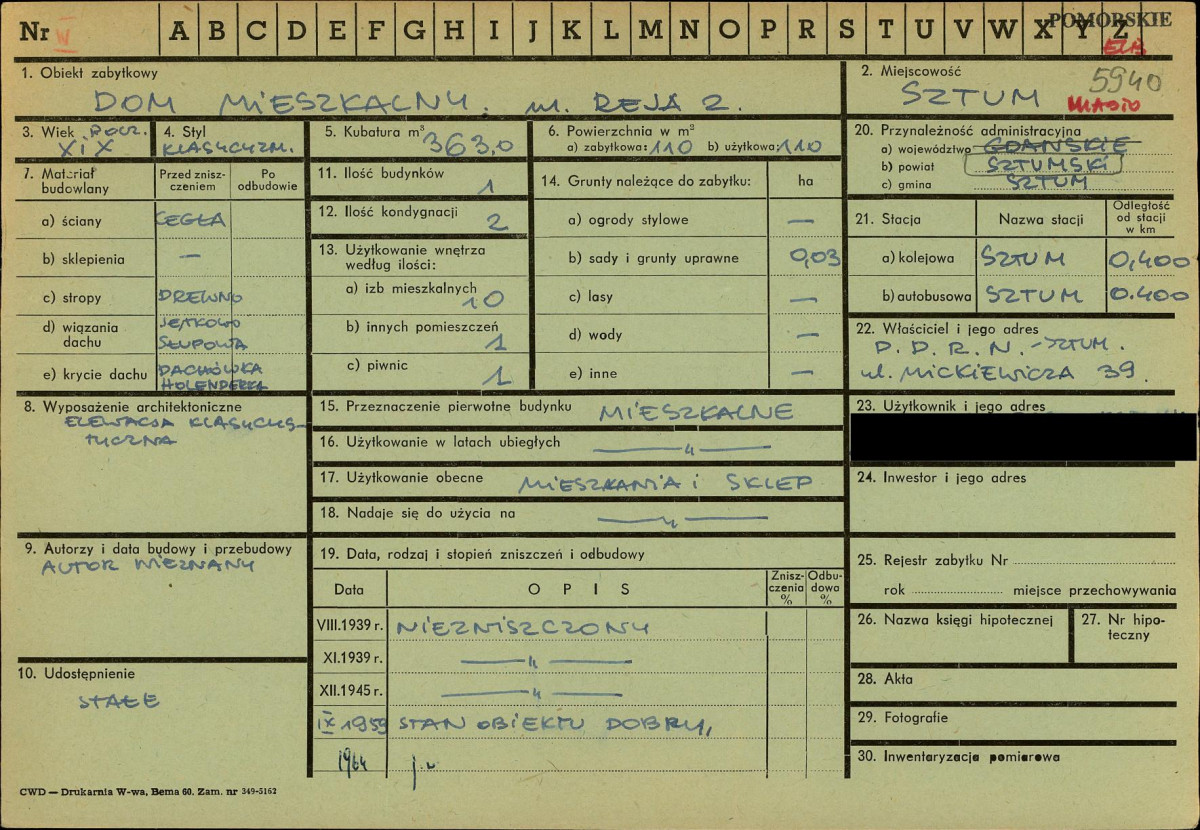 Nr IV A B C D E F G H I J K L M N O P R S T U V W X Y Z POMORSKIE
ELB
1. Obiekt zabytkowy
DOM MIESZKALNY. ul. REJA 2.
2. Miejscowość 5940
SZTUM MIASTO
3. Wiek POCZ.
XIX
4. Styl
KLASYCYZM.
5. Kubatura m³
363,0
6. Powierzchnia w m²
a) zabytkowa: 110 b) użytkowa: 110
20. Przynależność administracyjna
a) województwo GDAŃSKIE
b) powiat SZTUMSKI
c) gmina SZTUM
7. Materiał budowlany
Przed znisz-
czeniem
Po
odbudowie
a) ściany CEGŁA
b) sklepienia —
c) stropy DREWNO
d) wiązania dachu JĘTKOWO
SŁUPOWA
e) krycie dachu DACHÓWKA
HOLENDERKA
11. Ilość budynków
1
12. Ilość kondygnacji
2
13. Użytkowanie wnętrza
według ilości:
a) izb mieszkalnych
10
b) innych pomieszczeń
1
c) piwnic
1
14. Grunty należące do zabytku: ha
a) ogrody stylowe —
b) sady i grunty uprawne 0,03
c) lasy —
d) wody —
e) inne —
21. Stacja Nazwa stacji Odległość
od stacji
w km
a) kolejowa SZTUM 0,400
b) autobusowa SZTUM 0.400
22. Właściciel i jego adres
P. D. R. N. - SZTUM.
ul. MICKIEWICZA 39.
8. Wyposażenie architektoniczne
ELEWACJA KLASYCYS-
TYCZNA
15. Przeznaczenie pierwotne budynku MIESZKALNE
16. Użytkowanie w latach ubiegłych — „ —
17. Użytkowanie obecne MIESZKANIA i SKLEP
18. Nadaje się do użycia na — „ —
23. Użytkownik i jego adres
24. Inwestor i jego adres
9. Autorzy i data budowy i przebudowy
AUTOR NIEZNANY
10. Udostępnienie
STAŁE
19. Data, rodzaj i stopień zniszczeń i odbudowy
Data OPIS Znisz-
czenia
%
Odbu-
dowa
%
VIII.1939 r. NIEZNISZCZONY
XI.1939 r. — „ —
XII.1945 r. — „ —
IX 1959 STAN OBIEKTU DOBRY,
1964 j.w
25. Rejestr zabytku Nr
rok miejsce przechowywania
26. Nazwa księgi hipotecznej
27. Nr hipo-
teczny
28. Akta
29. Fotografie
30. Inwentaryzacja pomiarowa
CWD — Drukarnia W-wa, Bema 60. Zam. nr 349-5162